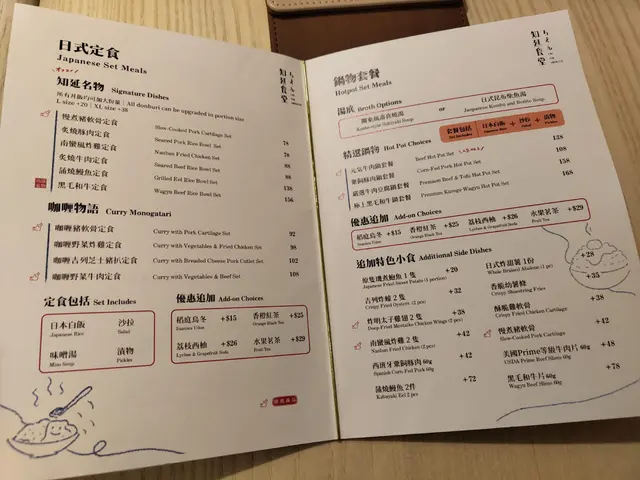 日式定食
Japanese Set Meals
知延食堂
知延名物 Signature Dishes
所有丼飯均可加大份量｜All donburi can be upgraded in portion size
L size +20｜XL size +38
慢煮豬軟骨定食 Slow-Cooked Pork Cartilage Set 78
炙燒豚肉定食 Seared Pork Rice Bowl Set 78
南蠻風炸雞定食 Nanban Fried Chicken Set 88
炙燒牛肉定食 Seared Beef Rice Bowl Set 88
蒲燒鰻魚定食 Grilled Eel Rice Bowl Set 138
黑毛和牛定食 Wagyu Beef Rice Bowl Set 156
咖喱物語 Curry Monogatari
咖喱豬軟骨定食 Curry with Pork Cartilage Set 92
咖喱野菜炸雞定食 Curry with Vegetables & Fried Chicken Set 98
咖喱吉列芝士豬扒定食 Curry with Breaded Cheese Pork Cutlet Set 102
咖喱野菜牛肉定食 Curry with Vegetables & Beef Set 108
定食包括 Set Includes
日本白飯 沙拉
Japanese Rice Salad
味噌湯 漬物
Miso Soup Pickles
優惠追加 Add-on Choices
稻庭烏冬 +$15 香橙紅茶 +$25
Inaniwa Udon Orange Black Tea
荔枝西柚 +$26 水果茗茶 +$29
Lychee & Grapefruit Soda Fruit Tea
鍋物套餐
Hotpot Set Meals
知延食堂
湯底 Broth Options
關東風壽喜燒湯 or 日式昆布柴魚湯
Kanto-style Sukiyaki Soup Japanese Kombu and Bonito Soup
套餐包括 日本白飯 + 沙拉 + 漬物
Set Includes Japanese Rice Salad Pickles
精選鍋物 Hot Pot Choices
元氣牛肉鍋套餐 Beef Hot Pot Set 138
粟飼豚肉鍋套餐 Corn-Fed Pork Hot Pot Set 108
嚴選牛肉豆腐鍋套餐 Premium Beef & Tofu Hot Pot Set 158
極上黑毛和牛鍋套餐 Premium Kuroge Wagyu Hot Pot Set 168
優惠追加 Add-on Choices
稻庭烏冬 +$15 香橙紅茶 +$25 荔枝西柚 +$26 水果茗茶 +$29
Inaniwa Udon Orange Black Tea Lychee & Grapefruit Soda Fruit Tea
追加特色小食 Additional Side Dishes
鮑魚 1隻 +20 日式炸甜薯 1份 +28
吉列炸蠔 2隻 +32 香脆幼薯條 +35
Crispy Fried Oysters (2 pcs) Crispy Shoestring Fries
炸明太子雞翅 2隻 +38 酥脆雞軟骨 +38
Deep-Fried Mentaiko Chicken Wings (2 pcs) Crispy Fried Chicken Cartilage
南蠻風炸雞 2件 +42 慢煮豬軟骨 +42
Nanban Fried Chicken (2 pcs) Slow-Cooked Pork Cartilage
西班牙粟飼豚肉 60g +42 美國Prime等級牛肉片 60g +48
Spanish Corn-Fed Pork 60g USDA Prime Beef Slices 60g
蒲燒鰻魚 2件 +72 黑毛和牛片 60g +78
Kabayaki Eel 2 pcs Wagyu Beef Slices 60g